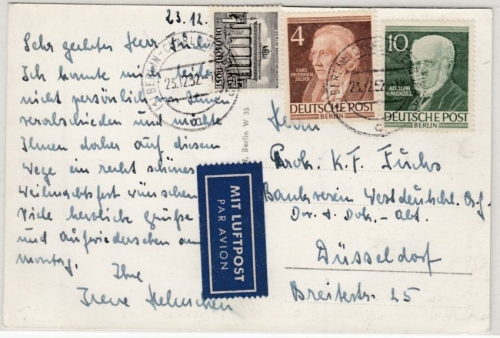 23.12.
Sehr geehrter Herr Fuchs!
Ich konnte mich
nicht persönlich von Ihnen
verabschieden und möchte
Ihnen daher auf diesem
Wege ein recht schönes
Weihnachtsfest wünschen
Viele herzliche Grüße
und Aufwiedersehen am
Montag.
Ihre
Irene Helmchen
BERLIN
23.12.52
DEUTSCHE POST
4
CARL FRIEDRICH ZELTER
DEUTSCHE POST
BERLIN
10
ADOLPH MENZEL
DEUTSCHE POST
BERLIN
23.12.52
Berlin W 35
MIT LUFTPOST
PAR AVION
Herrn
Prok. K. F. Fuchs
Bankverein Westdeutschl. A.G.
Dev. & Dok. - Abt.
Düsseldorf
Breitestr. 25